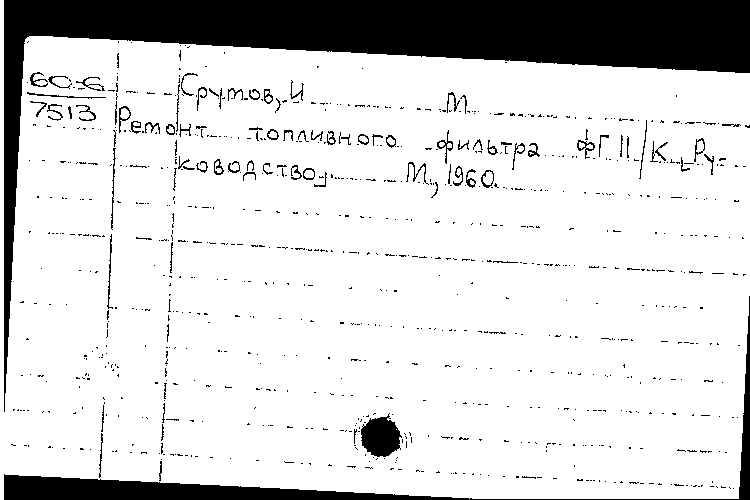 60-6
7513
Срутов, И М
Ремонт топливного фильтра ФГ 11/К. Ру-
ководство. М, 1960.